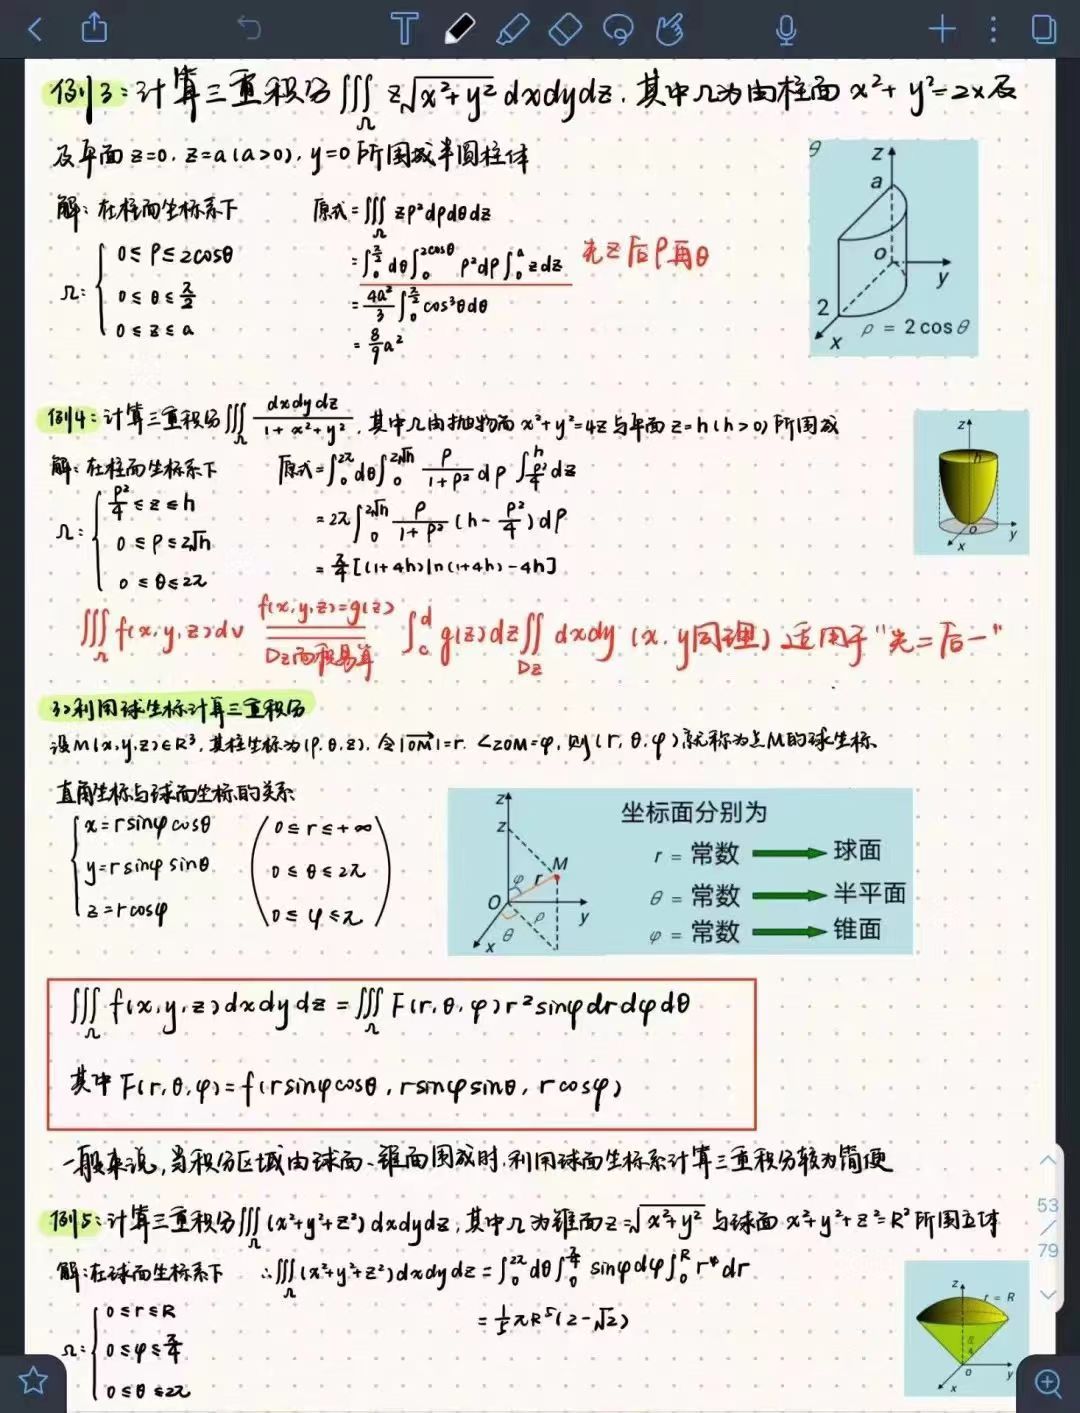 例3：计算三重积分∭_Ω z√(x²+y²) dxdydz，其中Ω为由柱面 x²+y²=2x及
及平面 z=0，z=a(a>0)，y=0所围成半圆柱体
解：在柱面坐标系下 原式=∭_Ω zρ²dρdθdz
Ω：{ 0≤ρ≤2cosθ
0≤θ≤π/2
0≤z≤a
=∫_0^{π/2} dθ∫_0^{2cosθ} ρ²dρ∫_0^a zdz 先z后ρ再θ
=4a²/3 ∫_0^{π/2} cos³θdθ
=8/9 a²
θ
z
a
o
y
2
x
ρ = 2 cos θ
例4：计算三重积分∭_Ω dxdydz/(1+x²+y²)，其中Ω由抛物面 x²+y²=4z 与平面 z=h(h>0)所围成
解：在柱面坐标系下 原式=∫_0^{2π} dθ∫_0^{2√h} ρ/(1+ρ²) dρ ∫_{ρ²/4}^h dz
Ω：{ ρ²/4≤z≤h
0≤ρ≤2√h
0≤θ≤2π
=2π∫_0^{2√h} ρ/(1+ρ²) (h-ρ²/4)dρ
=π/4[(1+4h)ln(1+4h)-4h]
z
h
o
y
x
∭_Ω f(x,y,z)dv f(x,y,z)=g(z) Dz面积易算 ∫_c^d g(z)dz∬_{Dz} dxdy (x,y同理) 适用于“先二后一”
(3)利用球坐标计算三重积分
设M(x,y,z)∈R³，其柱坐标为(ρ,θ,z)，令|OM|=r，∠ZOM=φ，则(r,θ,φ)就称为点M的球坐标
直角坐标与球面坐标的关系
{ x=rsinφcosθ
y=rsinφsinθ
z=rcosφ
( 0≤r≤+∞
0≤θ≤2π
0≤φ≤π )
z
z
M
φ
r
O
ρ
y
θ
x
坐标面分别为
r = 常数 → 球面
θ = 常数 → 半平面
φ = 常数 → 锥面
∭_Ω f(x,y,z)dxdydz=∭_Ω F(r,θ,φ)r²sinφdrdφdθ
其中F(r,θ,φ)=f(rsinφcosθ,rsinφsinθ,rcosφ)
一般来说，当积分区域由球面、锥面围成时，利用球面坐标系计算三重积分较为简便
53
/
79
例5：计算三重积分∭_Ω (x²+y²+z²)dxdydz，其中Ω为锥面z=√(x²+y²) 与球面 x²+y²+z²=R²所围立体
解：在球面坐标系下 ∴∭_Ω (x²+y²+z²)dxdydz=∫_0^{2π} dθ∫_0^{π/4} sinφdφ∫_0^R r⁴dr
Ω：{ 0≤r≤R
0≤φ≤π/4
0≤θ≤2π
=1/5πR⁵(2-√2)
z
r = R
π/4
o
y
x